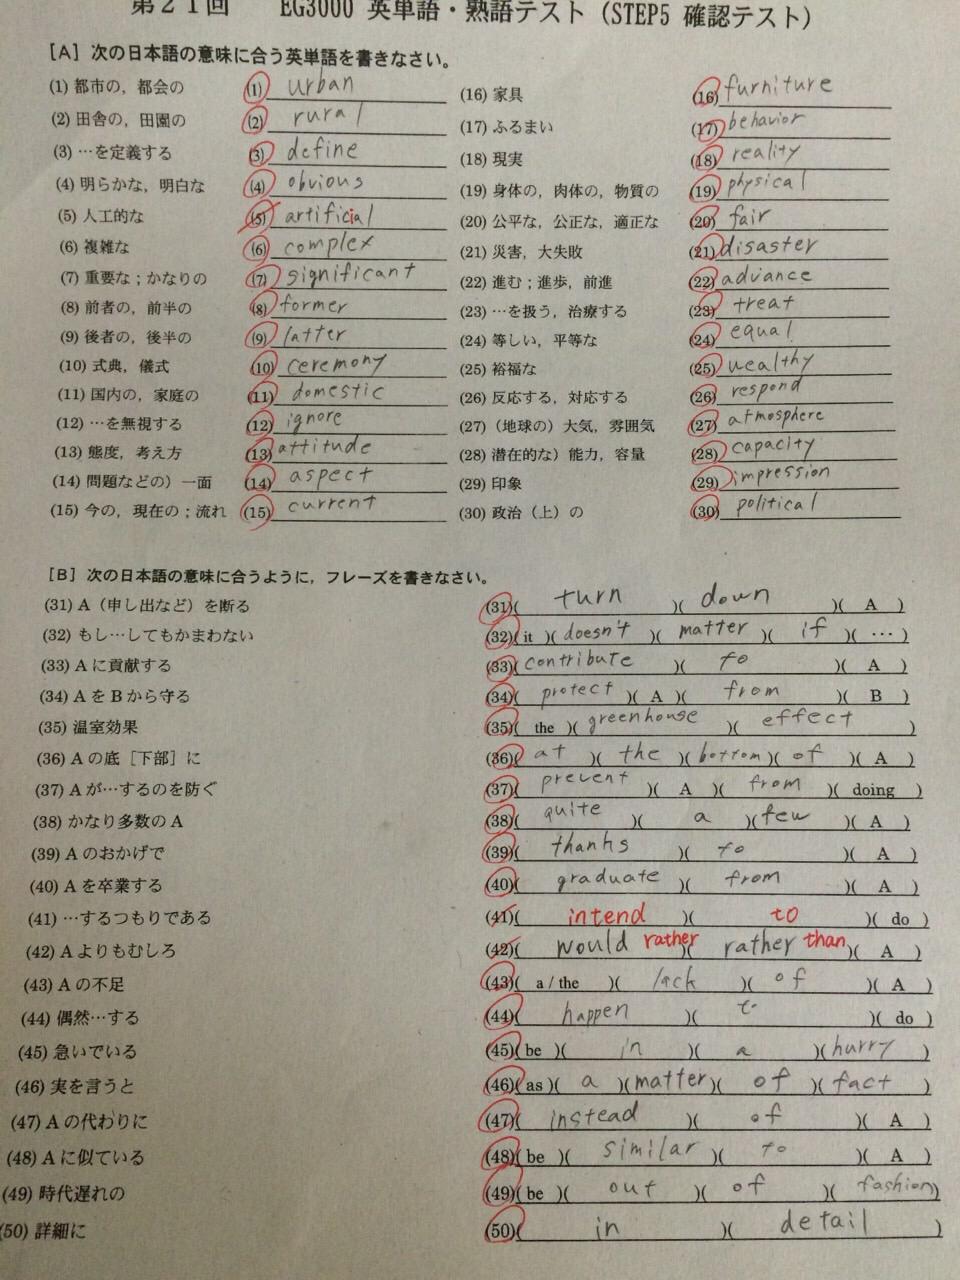 第21回 EG3000 英単語・熟語テスト（STEP5 確認テスト）
［A］次の日本語の意味に合う英単語を書きなさい。
(1) 都市の，都会の (1) urban
(2) 田舎の，田園の (2) rural
(3) …を定義する (3) define
(4) 明らかな，明白な (4) obvious
(5) 人工的な (5) artificial
(6) 複雑な (6) complex
(7) 重要な；かなりの (7) significant
(8) 前者の，前半の (8) former
(9) 後者の，後半の (9) latter
(10) 式典，儀式 (10) ceremony
(11) 国内の，家庭の (11) domestic
(12) …を無視する (12) ignore
(13) 態度，考え方 (13) attitude
(14) 問題などの）一面 (14) aspect
(15) 今の，現在の；流れ (15) current
(16) 家具 (16) furniture
(17) ふるまい (17) behavior
(18) 現実 (18) reality
(19) 身体の，肉体の，物質の (19) physical
(20) 公平な，公正な，適正な (20) fair
(21) 災害，大失敗 (21) disaster
(22) 進む；進歩，前進 (22) advance
(23) …を扱う，治療する (23) treat
(24) 等しい，平等な (24) equal
(25) 裕福な (25) wealthy
(26) 反応する，対応する (26) respond
(27)（地球の）大気，雰囲気 (27) atmosphere
(28) 潜在的な）能力，容量 (28) capacity
(29) 印象 (29) impression
(30) 政治（上）の (30) political
［B］次の日本語の意味に合うように，フレーズを書きなさい。
(31) A（申し出など）を断る (31)( turn )( down )( A )
(32) もし…してもかまわない (32)( it )( doesn't )( matter )( if )( … )
(33) Aに貢献する (33)( contribute )( to )( A )
(34) AをBから守る (34)( protect )( A )( from )( B )
(35) 温室効果 (35)( the )( greenhouse )( effect )
(36) Aの底［下部］に (36)( at )( the )( bottom )( of )( A )
(37) Aが…するのを防ぐ (37)( prevent )( A )( from )( doing )
(38) かなり多数のA (38)( quite )( a )( few )( A )
(39) Aのおかげで (39)( thanks )( to )( A )
(40) Aを卒業する (40)( graduate )( from )( A )
(41) …するつもりである (41)( intend )( to )( do )
(42) Aよりもむしろ (42)( would rather )( rather than )( A )
(43) Aの不足 (43)( a / the )( lack )( of )( A )
(44) 偶然…する (44)( happen )( to )( do )
(45) 急いでいる (45)( be )( in )( a )( hurry )
(46) 実を言うと (46)( as )( a )( matter )( of )( fact )
(47) Aの代わりに (47)( instead )( of )( A )
(48) Aに似ている (48)( be )( similar )( to )( A )
(49) 時代遅れの (49)( be )( out )( of )( fashion )
(50) 詳細に (50)( in )( detail )